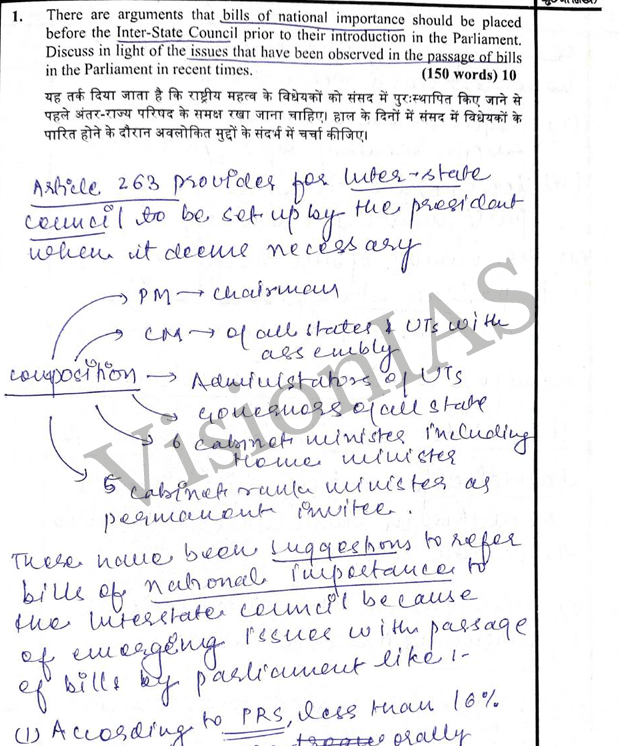 1. There are arguments that bills of national importance should be placed
before the Inter-State Council prior to their introduction in the Parliament.
Discuss in light of the issues that have been observed in the passage of bills
in the Parliament in recent times. (150 words) 10
यह तर्क दिया जाता है कि राष्ट्रीय महत्व के विधेयकों को संसद में पुरःस्थापित किए जाने से
पहले अंतर-राज्य परिषद के समक्ष रखा जाना चाहिए। हाल के दिनों में संसद में विधेयकों के
पारित होने के दौरान अवलोकित मुद्दों के संदर्भ में चर्चा कीजिए।
Article 263 provides for Inter-state
council to be set up by the president
when it deems necessary
PM → chairman
CM → of all states & UTs with
assembly
composition → Administators of UTs
Governors of all state
6 cabinet minister including
Home minister
5 cabinet rank minister as
permanent invitee.
There have been suggestions to refer
bills of national importance to
the Interstate council because
of emerging issues with passage
of bills by parliament like :-
(1) According to PRS, less than 10%
orally
VisionIAS